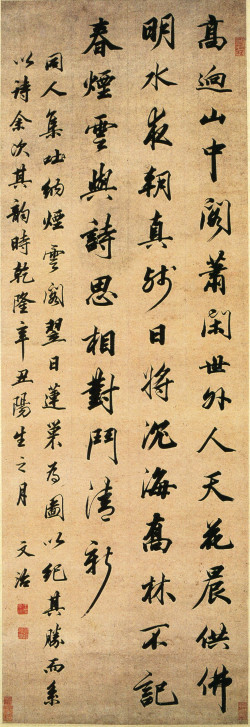 高迥山中閣蕭閑世外人天花晨供佛
明水夜朝真殘日將沉海喬林不記
春煙雲與詩思相對鬥清新
同人集納煙雲閣翌日蓮巢為圖以紀其勝而系
以詩余次其韵時乾隆辛丑陽生之月 文治